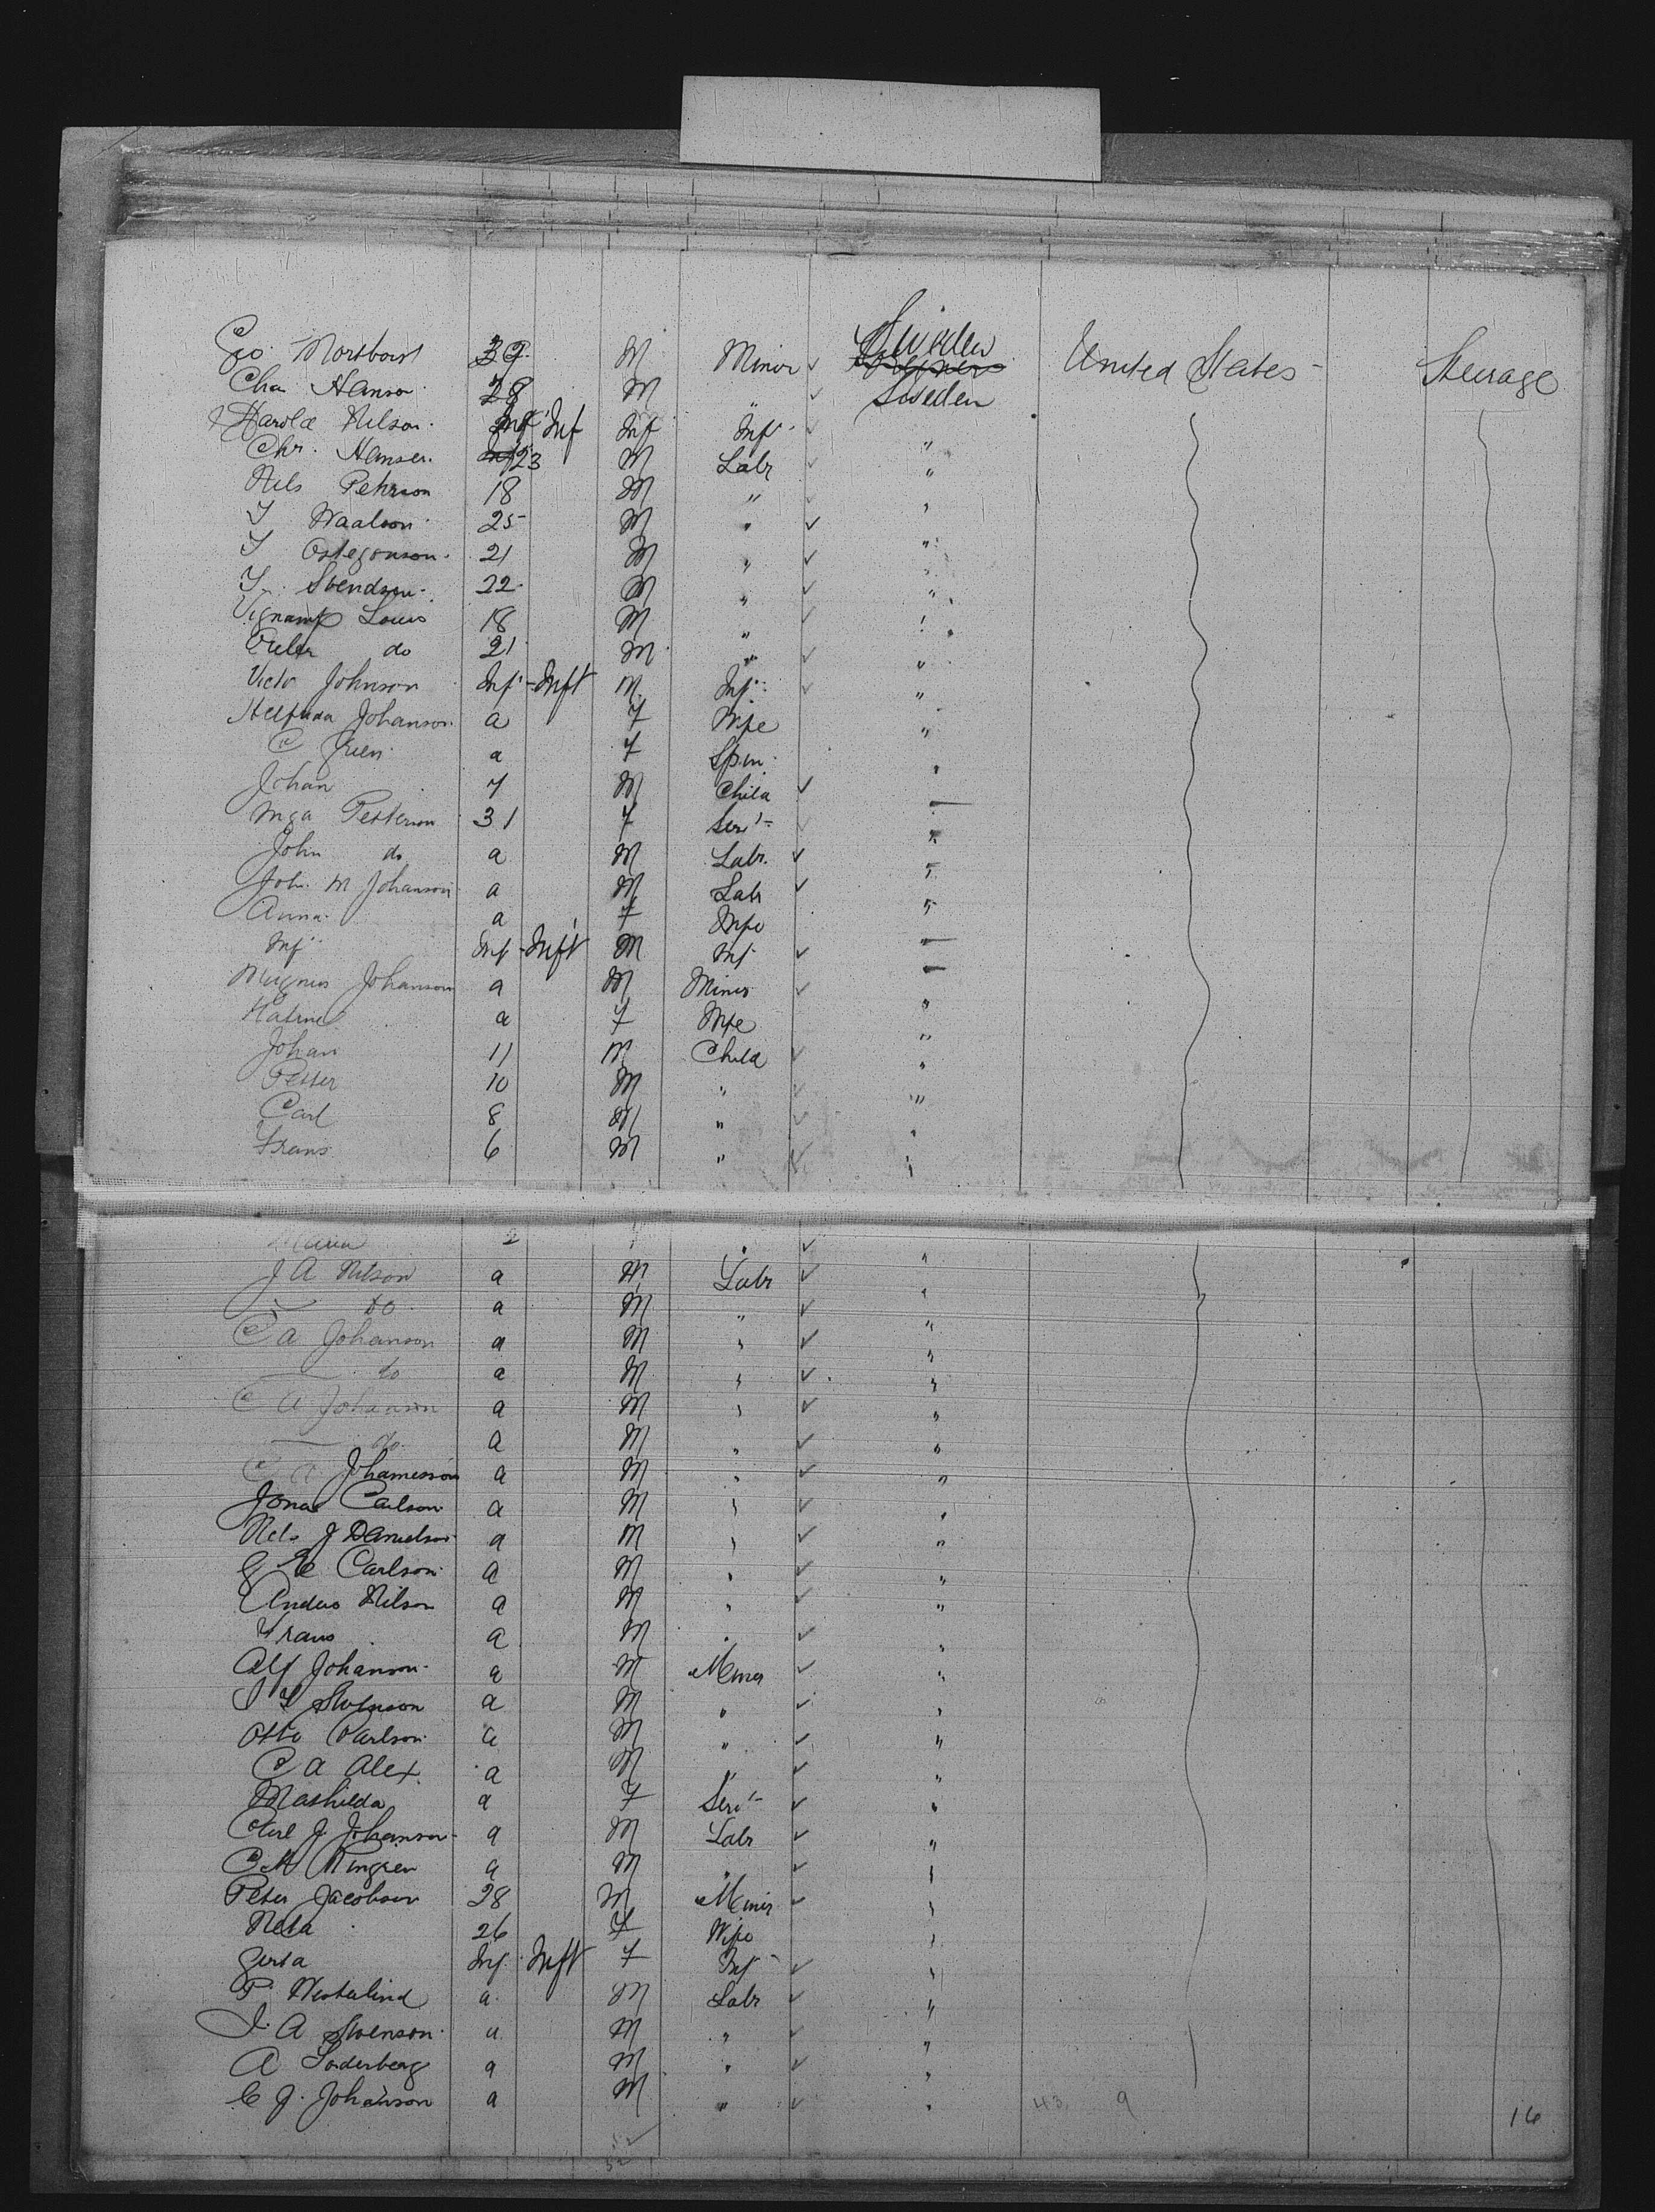 Geo. Morsboist 39 M Minor ✓ Sweden United States - Steerage
Cha Hanson 28 M " ✓ Sweden
Harold Nilson Inf Inf Inf Inf ✓ "
Chr. Hansen 23 M Labr ✓ "
Nils Pehrson 18 M " ✓ "
Waalson 25 M " ✓ "
21 M " ✓ "
Svendsen 22 M " ✓ "
Louis 18 M " ✓ "
do 21 M " ✓ "
Victo Johnson Inf - Inft M Inf ✓ "
Johanson a F Wife "
C a F Spin "
Johan 7 M Child ✓ "
Inga Petterson 31 F Serv ✓ "
John do a M Labr. ✓ "
Joh. M Johanson a M Labr ✓ "
Anna a F Wife "
Inf Inf - Inft M Inf ✓ "
Magnus Johanson a M Miner ✓ "
Katrine a F Wife "
Johan 11 M Child ✓ "
Petter 10 M " ✓ "
Carl 8 M " ✓ "
Frans 6 M " ✓ "
Maria 2 " ✓ "
J A Nilson a M Labr ✓ "
— do a M " ✓ "
C A Johanson a M " ✓ "
— do a M " ✓ "
C A Johanson a M " ✓ "
— do a M " ✓ "
C A Johannesson a M " ✓ "
Jonas Carlson a M " ✓ "
Nels J Danielson a M " ✓ "
G E Carlson a M " ✓ "
Anders Nilson a M " ✓ "
Frans a M " ✓ "
Alf Johanson a M Miner ✓ "
Svenson a M " ✓ "
Otto Carlson a M " ✓ "
C A Alex a M " ✓ "
Mathilda a F Serv ✓ "
Carl J. Johanson a M Labr ✓ "
C M Ringren a M " ✓ "
Peter Jacobson 28 M Miner ✓ "
Neta 26 F Wife "
Gerta Inf. Inft F Inf ✓ "
P. Westerlind a M Labr ✓ "
J. A Svenson a M " ✓ "
A Soderberg a M " ✓ "
C J. Johanson a M " ✓ " 43 9 16
52
52